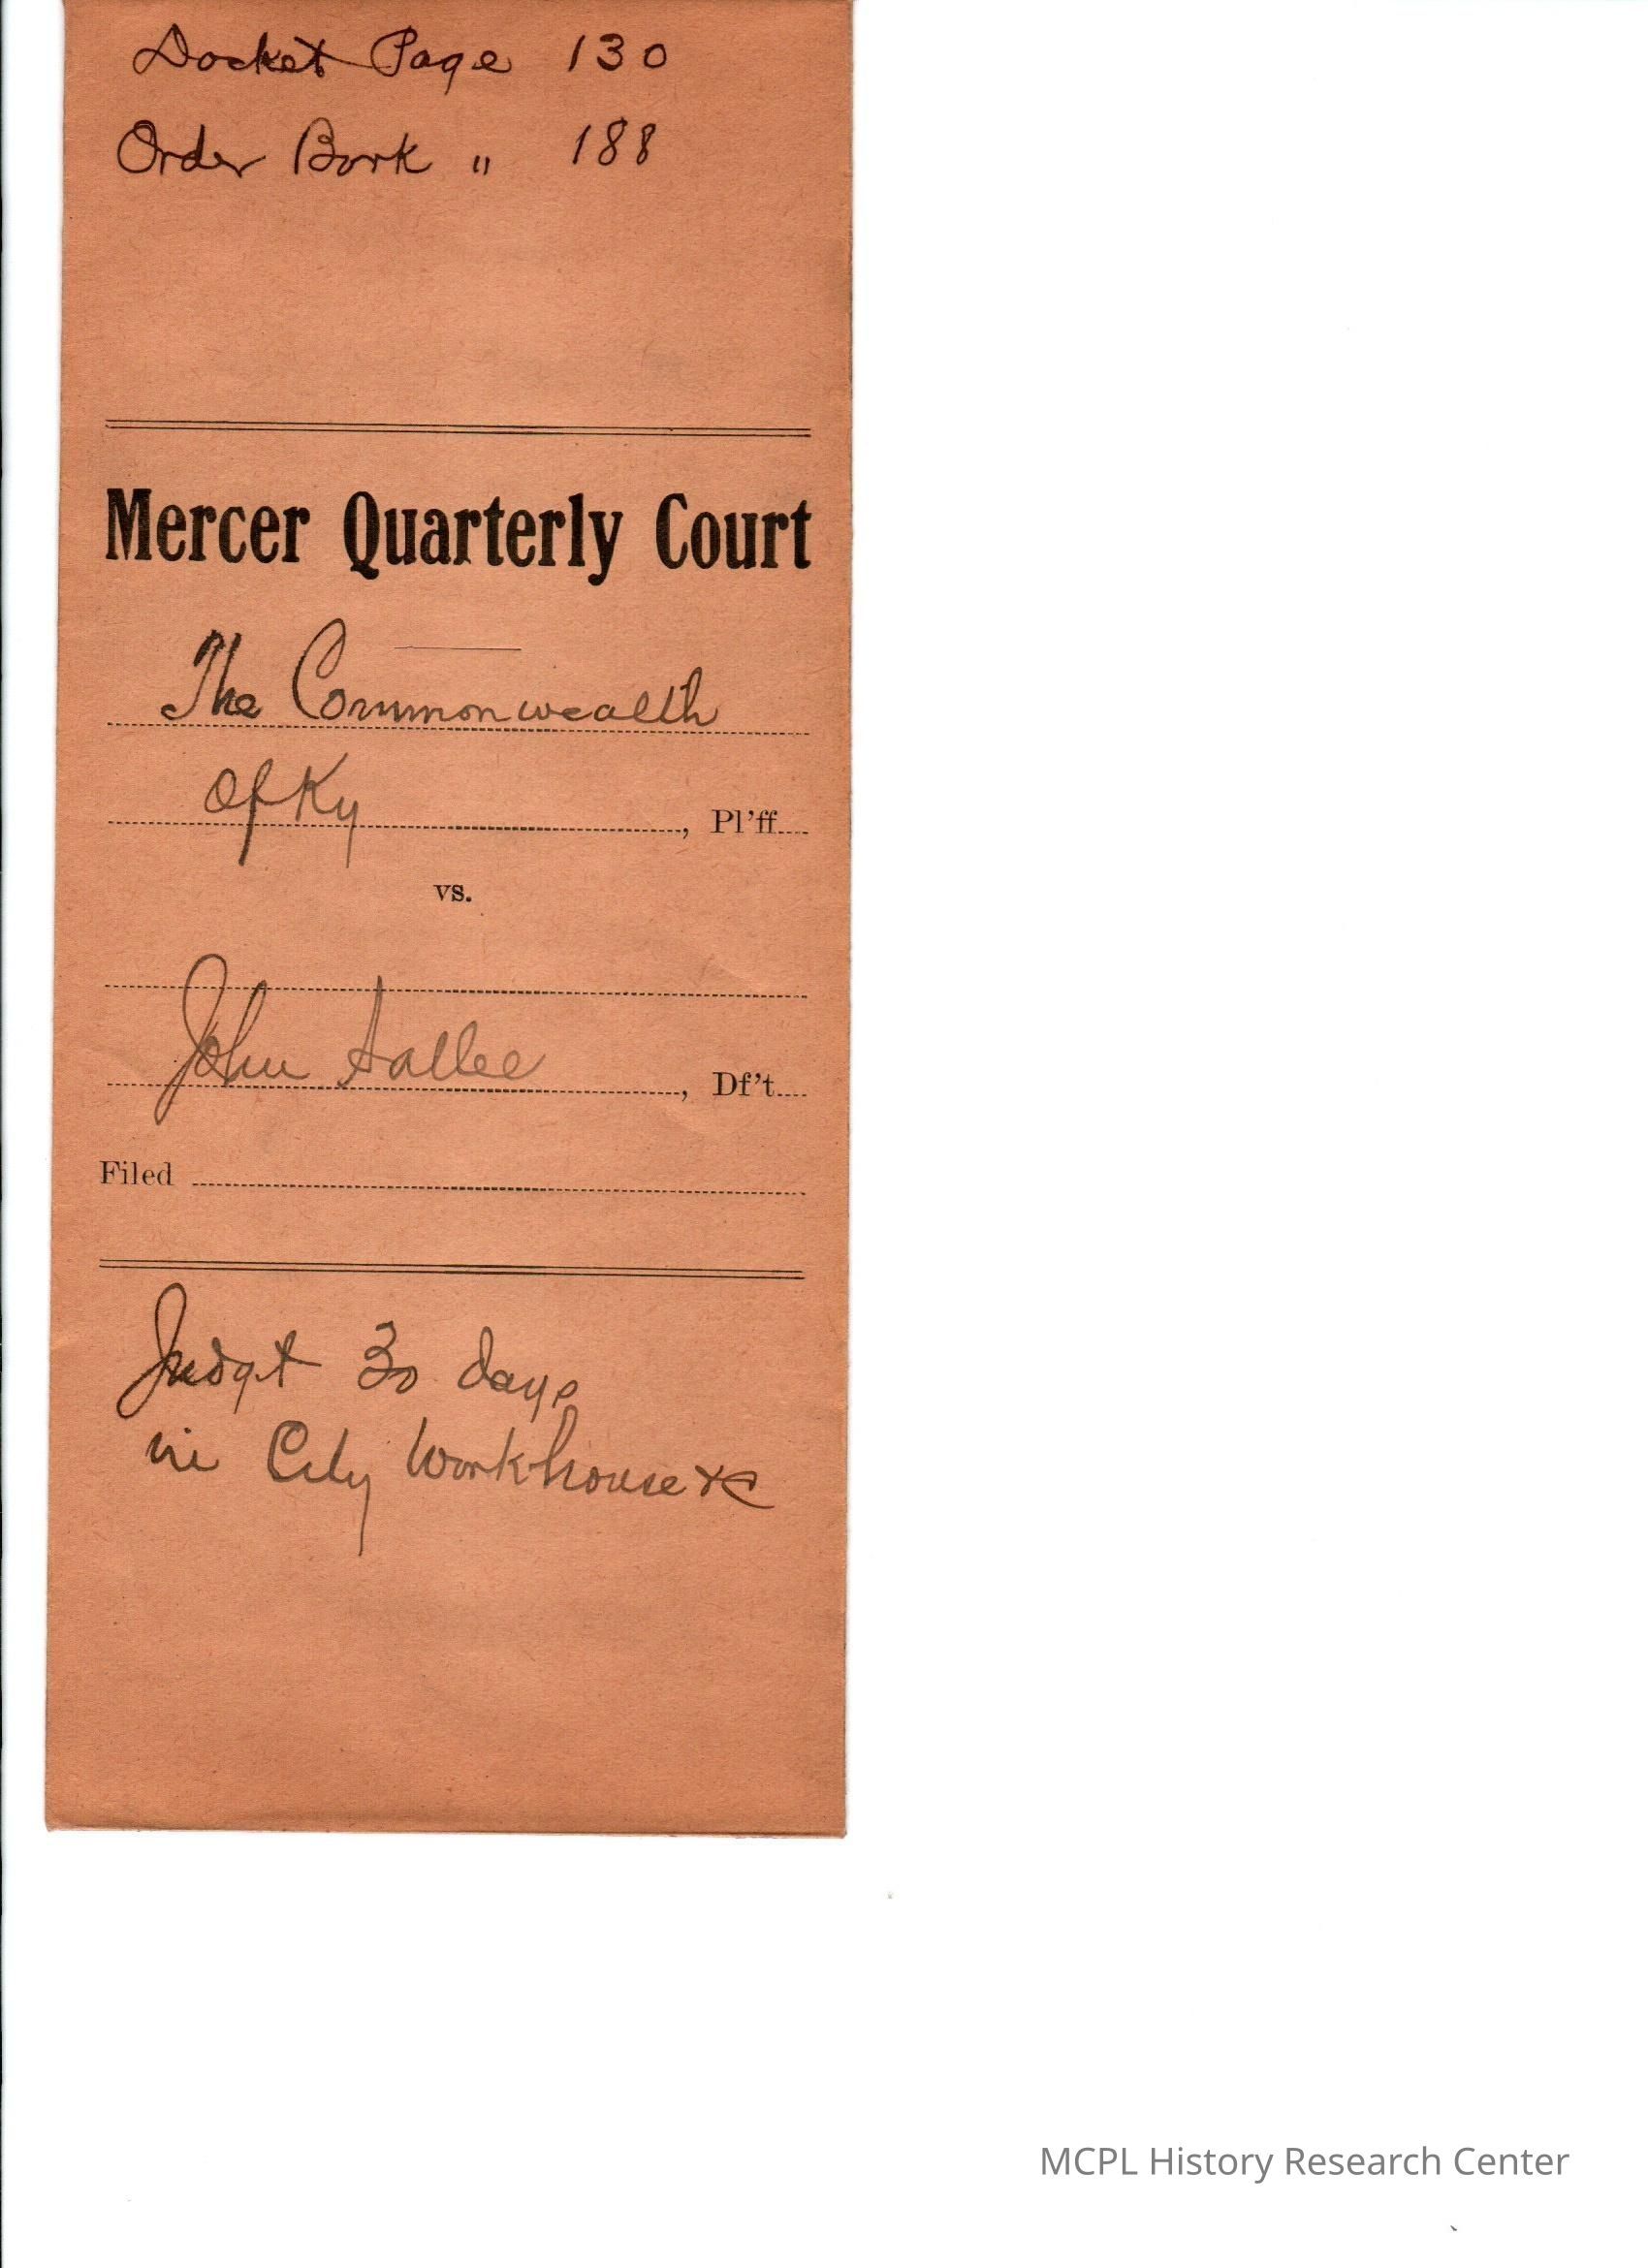 Docket Page 130
Order Book " 188
Mercer Quarterly Court
The Commonwealth
Of Ky, Pl'ff
vs.
John Sallee, Df't
Filed
Judgt 30 days
in City Workhouse &c
MCPL History Research Center